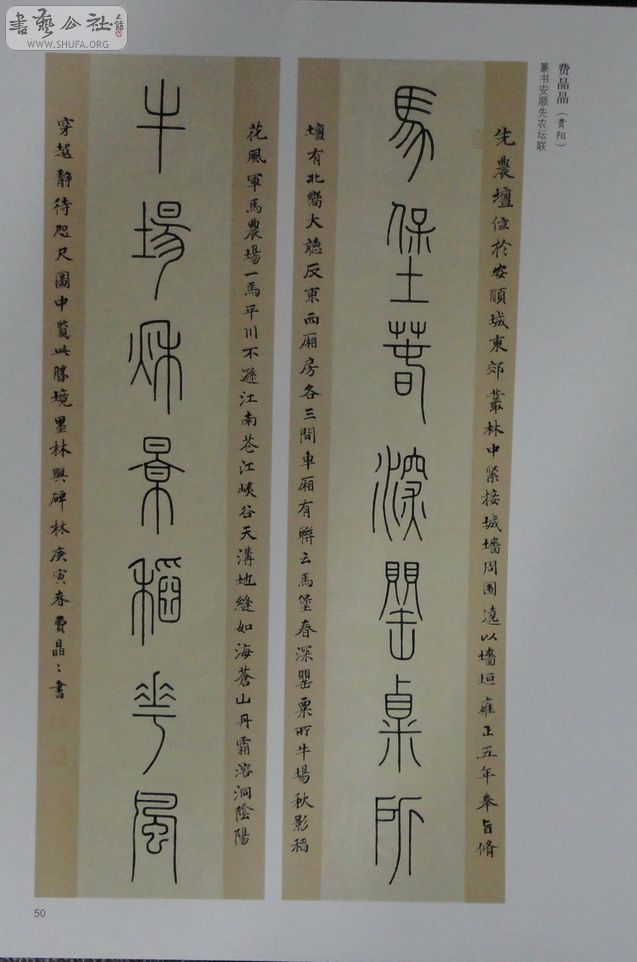 書藝公社
WWW.SHUFA.ORG
费晶晶（贵阳）
篆书安顺先农坛联
先農壇位於安順城東郊叢林中緊接城墻周圍遶以墻垣雍正五年奉旨脩
馬保土萅深罌粟所
壇有北嚮大聽反東西廂房各三間車厢有聯云馬堡春深罌粟所牛場秋影稻
花風軍馬農場一馬平川不遜江南苍江峽谷天溝地縫如海蒼山丹霜溶洞陰陽
牛場秌景稻華風
穿越靜待咫尺圖中覽此勝境墨林與碑林庚寅春費晶〻書
50